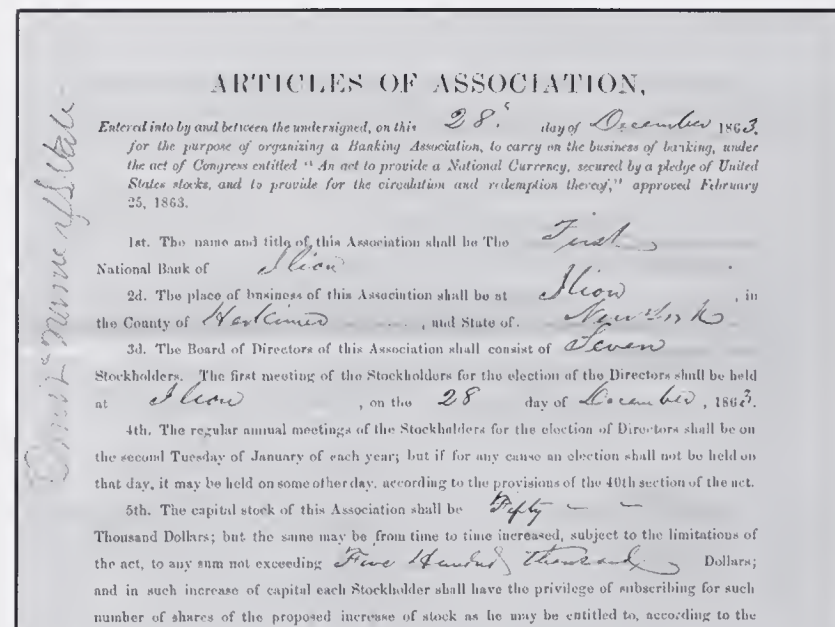 ARTICLES OF ASSOCIATION,
Entered into by and between the undersigned, on this 28. day of December 1863.
for the purpose of organizing a Banking Association, to carry on the business of banking, under
the act of Congress entitled "An act to provide a National Currency, secured by a pledge of United
States stocks, and to provide for the circulation and redemption thereof," approved February
25, 1863.
1st. The name and title of this Association shall be The First
National Bank of Ilion
2d. The place of business of this Association shall be at Ilion, in
the County of Herkimer, and State of. New York
3d. The Board of Directors of this Association shall consist of Seven
Stockholders. The first meeting of the Stockholders for the election of the Directors shall be held
at Ilion, on the 28 day of December, 1863.
4th. The regular annual meetings of the Stockholders for the election of Directors shall be on
the second Tuesday of January of each year; but if for any cause an election shall not be held on
that day, it may be held on some other day, according to the provisions of the 40th section of the act.
5th. The capital stock of this Association shall be Fifty — —
Thousand Dollars; but the same may be from time to time increased, subject to the limitations of
the act, to any sum not exceeding Five Hundred thousand Dollars;
and in such increase of capital each Stockholder shall have the privilege of subscribing for such
number of shares of the proposed increase of stock as he may be entitled to, according to the